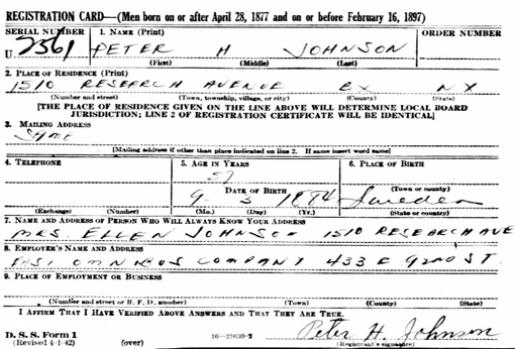 REGISTRATION CARD—(Men born on or after April 28, 1877 and on or before February 16, 1897)
SERIAL NUMBER 1. NAME (Print) ORDER NUMBER
U 2361 PETER H JOHNSON
(First) (Middle) (Last)
2. PLACE OF RESIDENCE (Print)
1510 RESEARCH AVENUE BX NY
(Number and street) (Town, township, village, or city) (County) (State)
[THE PLACE OF RESIDENCE GIVEN ON THE LINE ABOVE WILL DETERMINE LOCAL BOARD
JURISDICTION; LINE 2 OF REGISTRATION CERTIFICATE WILL BE IDENTICAL]
3. MAILING ADDRESS
SAME
[Mailing address if other than place indicated on line 2. If same insert word same]
4. TELEPHONE 5. AGE IN YEARS 6. PLACE OF BIRTH
57
DATE OF BIRTH (Town or county)
9 3 1884 Sweden
(Exchange) (Number) (Mo.) (Day) (Yr.) (State or country)
7. NAME AND ADDRESS OF PERSON WHO WILL ALWAYS KNOW YOUR ADDRESS
MRS. ELLEN JOHNSON 1510 RESEARCH AVE
8. EMPLOYER'S NAME AND ADDRESS
OMNIBUS COMPANY 433 E 92ND ST.
9. PLACE OF EMPLOYMENT OR BUSINESS
(Number and street or R. F. D. number) (Town) (County) (State)
I AFFIRM THAT I HAVE VERIFIED ABOVE ANSWERS AND THAT THEY ARE TRUE.
D. S. S. Form 1 Peter H. Johnson
(Revised 4-1-42) (over) (Registrant's signature)